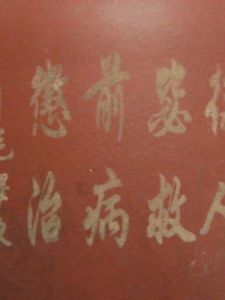 懲前毖後
治病救人